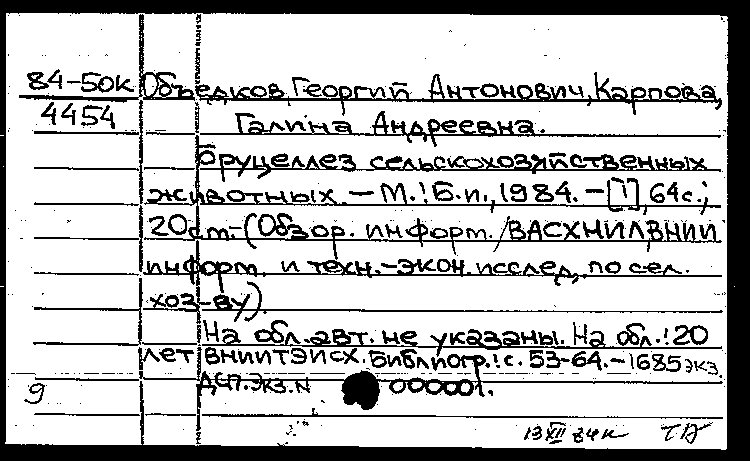 84-50к Объедков, Георгий Антонович, Карпова,
4454 Галина Андреевна.
Бруцеллез сельскохозяйственных
животных. – М.: Б.и., 1984. – [1], 64с.;
20см.-(Обзор. информ./ВАСХНИЛ, ВНИИ
информ. и техн.-экон. исслед. по сел.
хоз-ву).
На обл. авт. не указаны. На обл.: 20
лет ВНИИТЭИСХ. Библиогр.: с. 53-64.-1685 экз.
9 ДЧП. экз. N 000001.
13 XII 84